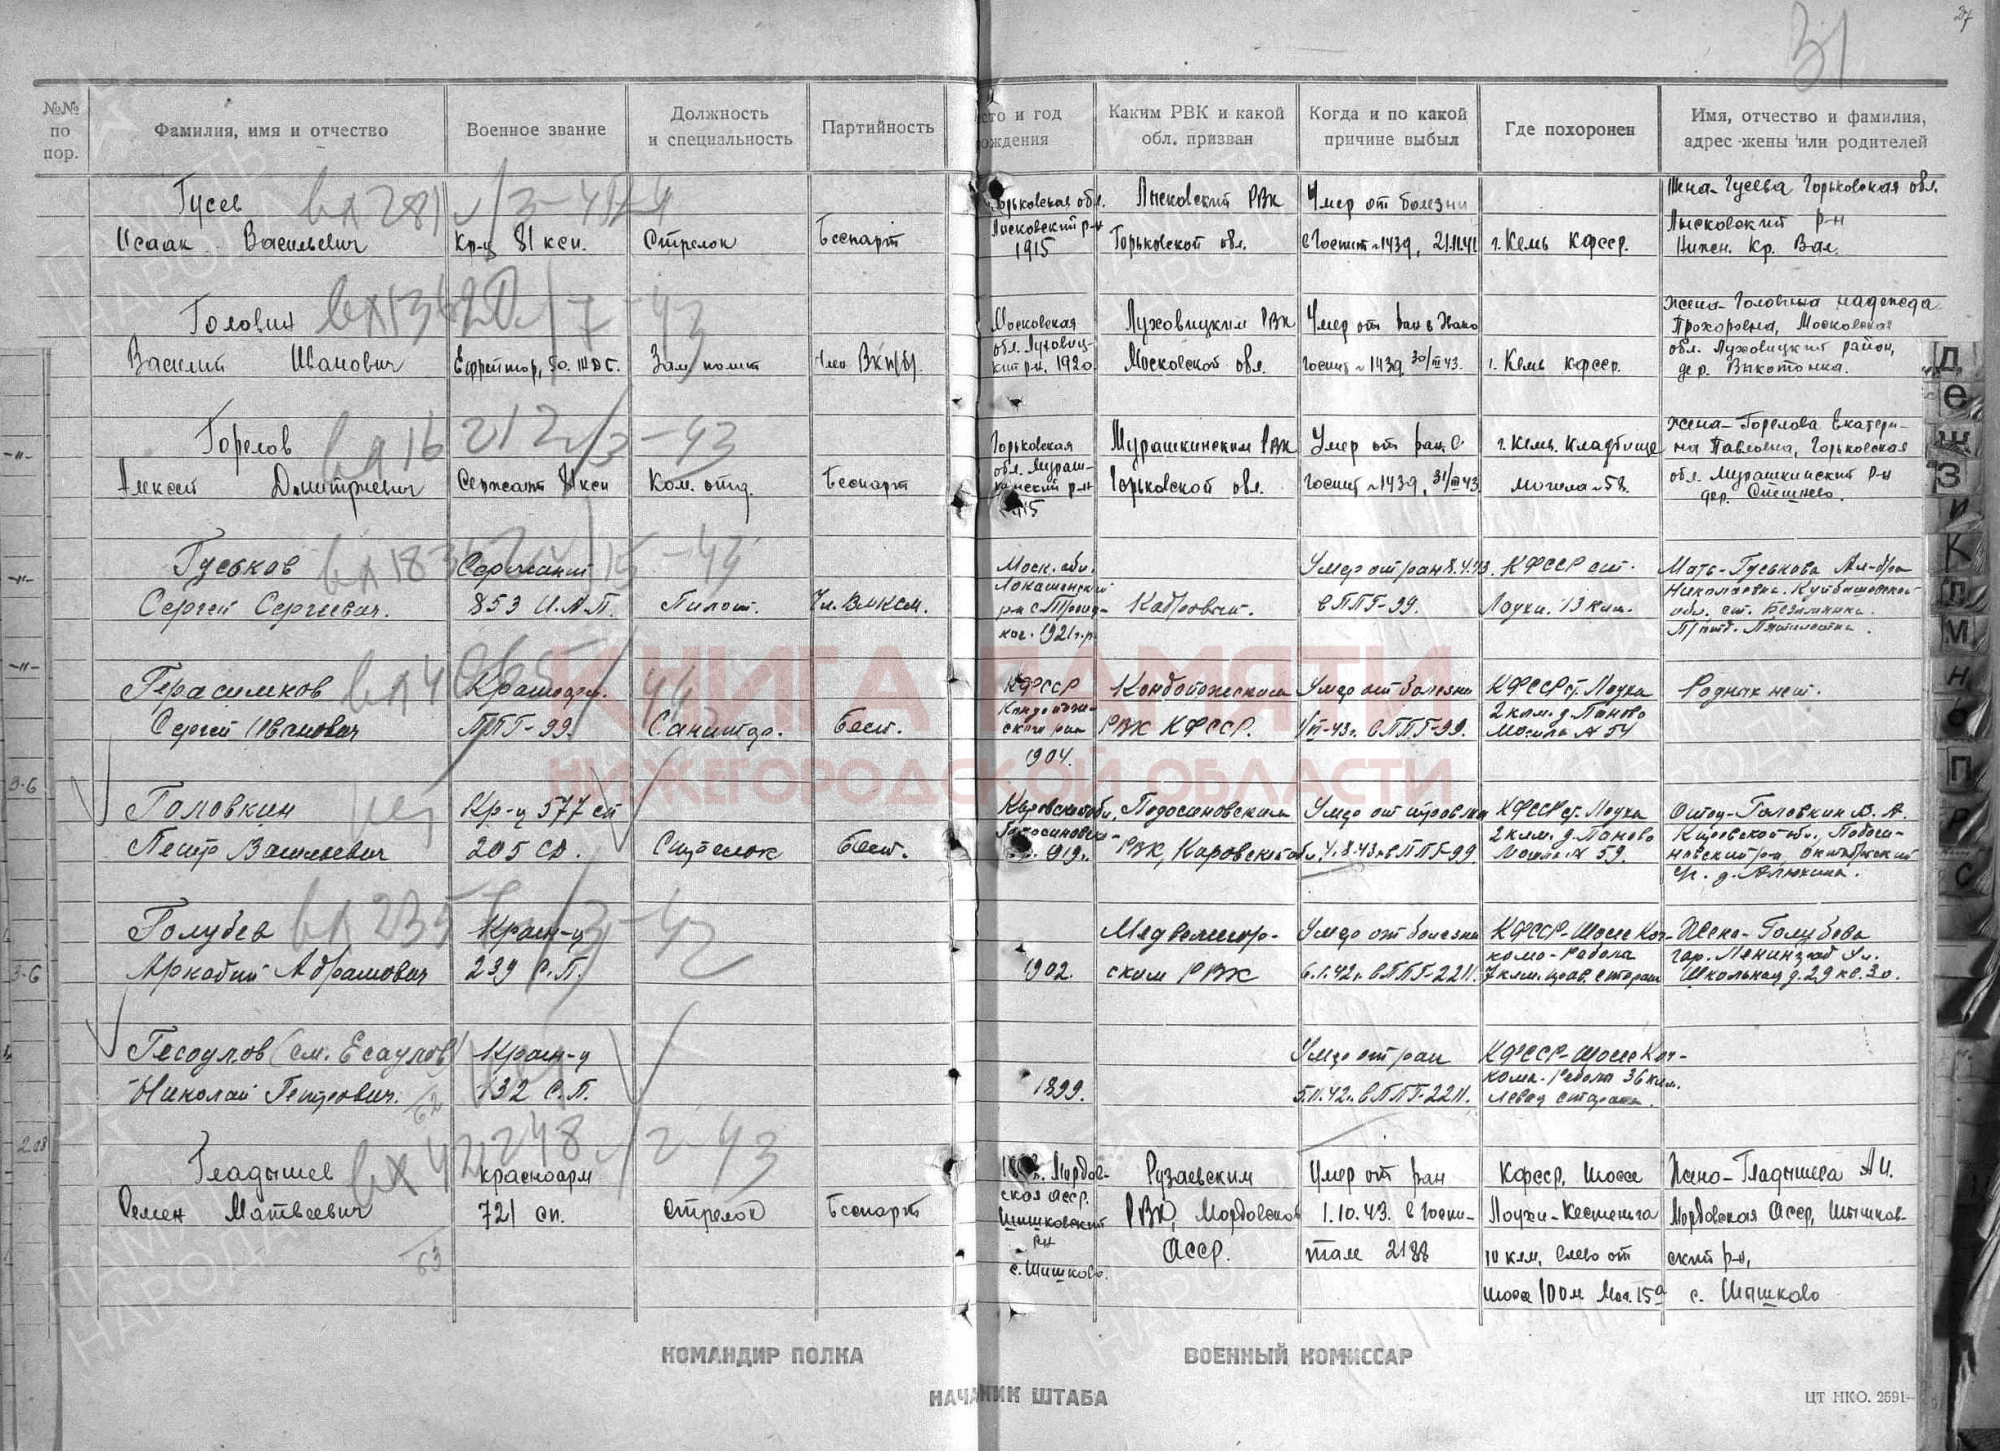 37
31
№№ по пор.
Фамилия, имя и отчество
Военное звание
Должность и специальность
Партийность
сто и год ождения
Каким РВК и какой обл. призван
Когда и по какой причине выбыл
Где похоронен
Имя, отчество и фамилия, адрес жены или родителей
Гусев
Исаак Васильевич
Кр-ц 81 ксп.
Стрелок
Беспарт
Горьковская обл.
Лысковский р-н
1915
Лысковский РВК
Горьковской обл.
Умер от болезни
в Госпит №1439, 21.11.41
г. Кемь КФССР.
Жена-Гусева Горьковская обл.
Лысковский р-н
Нижн. Кр. Вал.
Головин
Василий Иванович
Ефрейтор,
Зам полит
Член ВКП(б).
Московская
обл. Луховиц-
кий р-н, 1920
Луховицким РВК
Московской обл.
Умер от ран в
госпит №1439 30/III 43.
г. Кемь КФССР.
Жена-Головина Надежда
Прохоровна, Московская
обл. Луховицкий район,
дер.
Горелов
Алексей Дмитриевич
Сержант 81 ксп
Ком. отд.
Беспарт
Горьковская
обл. Мураш-
кинский р-н
1915
Мурашкинским РВК
Горьковской обл.
Умер от ран. в
госпит №1439, 31/III 43
г. Кемь. Кладбище
могила №58.
Жена-Горелова Екатери-
на Павловна, Горьковская
обл. Мурашкинский р-н
дер. Спешнево.
Гуськов
Сергей Сергеевич.
Сержант
853 И.А.П.
Пилот.
Чл. ВЛКСМ.
Моск. обл.
1921 г.р.
Кадровый.
Умер от ран 8.4.43.
в ППГ-99.
КФССР ст.
Лоухи. 13 клм.
Мать-Гуськова Ал-дра
Николаевна. Куйбышевская
обл. ст. Безымянка.
Герасимков
Сергей Иванович
Красноарм.
ППГ-99.
Санитар.
Бесп.
КФССР
Кондопож-
ский р-н
1904.
Кондопожским
РВК КФССР.
Умер от болезни
в ППГ-99.
КФССР ст. Лоухи
2 клм. д. Паново
Могила №54
Родных нет.
Головкин
Петр Васильевич
нет
Кр-ц 577 сп
205 СД.
Стрелок
Бесп.
Кировская обл,
Подосиновско-
1919г.
Подосиновским
РВК, Кировской обл.
Умер от
4.8.43г. в ППГ-99
КФССР ст. Лоухи
2 клм. д. Паново
Могила №59.
Отец-Головкин В. А.
Кировская обл, Подоси-
новский р-н, Октябрьский
с/с. д. Алюхина.
Голубев
Аркадий Абрамович
Красн-ц
239 С.П.
1902.
Медвежегор-
ским РВК
Умер от болезни
6.1.42г. в ППГ-2211.
КФССР-Шоссе Коч-
кома-Ребола
7 клм. прав. сторона
Жена-Голубева
гор. Ленинград ул.
Школьная д. 29 кв. 30.
Гесоулов (см. Есаулов)
Николай Петрович.
62
Красн-ц
132 С.П.
1899.
Умер от ран
5.11.42г. в ППГ-2211.
КФССР-Шоссе Коч-
кома-Ребола 36 клм.
левая сторона.
Гладышев
Семен Матвеевич
63
красноарм
721 сп.
Стрелок
Беспарт
Мордов-
ская АССР.
Шишковский
р-н
с. Шишково.
Рузаевским
РВК, Мордовской
АССР.
Умер от ран
1.10.43. в госпи-
тале 2188
КФССР, шоссе
Лоухи-Кестеньга
10 клм, влево от
шоссе 100 м Мог. 15а
Жена-Гладышева А И.
Мордовская АССР, Шишков-
ский р-н,
с. Шишково
КНИГА ПАМЯТИ
НИЖЕГОРОДСКОЙ ОБЛАСТИ
КОМАНДИР ПОЛКА
ВОЕННЫЙ КОМИССАР
НАЧА НИК ШТАБА
ЦТ НКО. 2591-